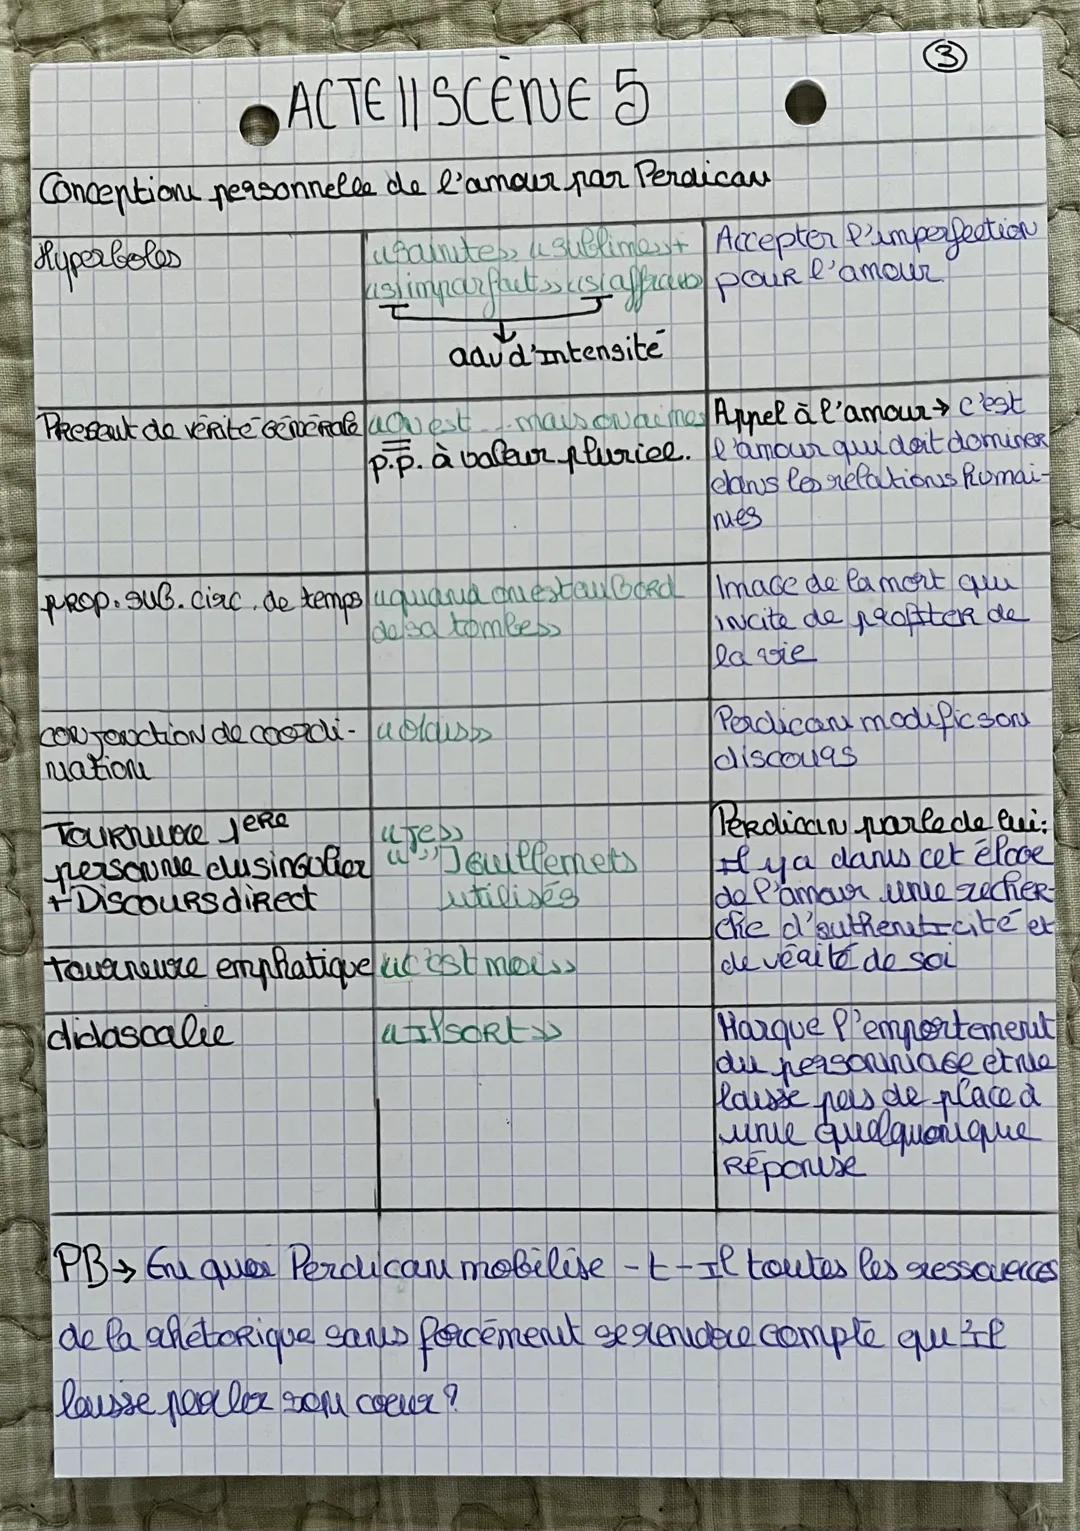 3
ACTE II SCÈNE 5
Conception personnelle de l'amour par Perdican
Hyperboles
«sainte», «sublime» +
«si imparfait» «si affreux»
adv d'intensité
Accepter l'imperfection
pour l'amour
Présent de vérité générale
«On est ... mais on aime»
p.p. à valeur pluriel.
Appel à l'amour → c'est
l'amour qui doit dominer
dans les relations humai-
nes
prop. sub. circ. de temps
«quand on est au bord
de sa tombe»
Image de la mort qui
incite de profiter de
la vie
conjonction de coordi-
nation
«Mais»
Perdican modifie son
discours
Tournure 1ERE
personne du singulier
+ Discours direct
«Je»
«"» Guillemets
utilisés
Perdican parle de lui:
Il y a dans cet éloge
de l'amour une recher-
che d'authenticité et
de vérité de soi
tournure emphatique
«c'est moi»
didascalie
«Il sort»
Marque l'emportement
du personnage et ne
laisse pas de place à
une quelquonque
réponse
PB → En quoi Perdican mobilise -t-il toutes les ressources
de la rhétorique sans forcément se rendre compte qu'il
laisse parler son coeur ?